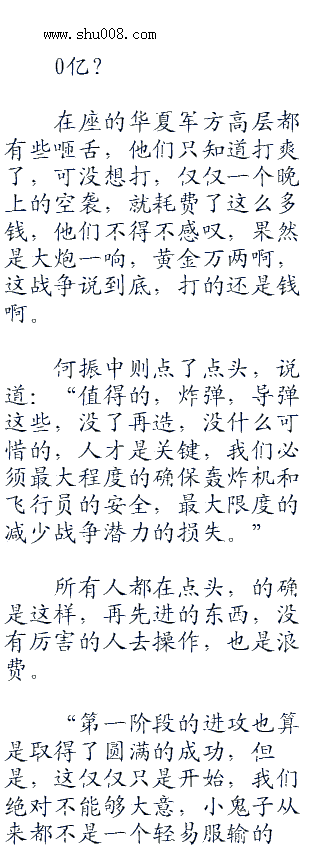 www.shu008.com
0亿？
在座的华夏军方高层都
有些咂舌，他们只知道打爽
了，可没想打，仅仅一个晚
上的空袭，就耗费了这么多
钱，他们不得不感叹，果然
是大炮一响，黄金万两啊，
这战争说到底，打的还是钱
啊。
何振中则点了点头，说
道：“值得的，炸弹，导弹
这些，没了再造，没什么可
惜的，人才是关键，我们必
须最大程度的确保轰炸机和
飞行员的安全，最大限度的
减少战争潜力的损失。”
所有人都在点头，的确
是这样，再先进的东西，没
有厉害的人去操作，也是浪
费。
“第一阶段的进攻也算
是取得了圆满的成功，但
是，这仅仅只是开始，我们
绝对不能够大意，小鬼子从
来都不是一个轻易服输的